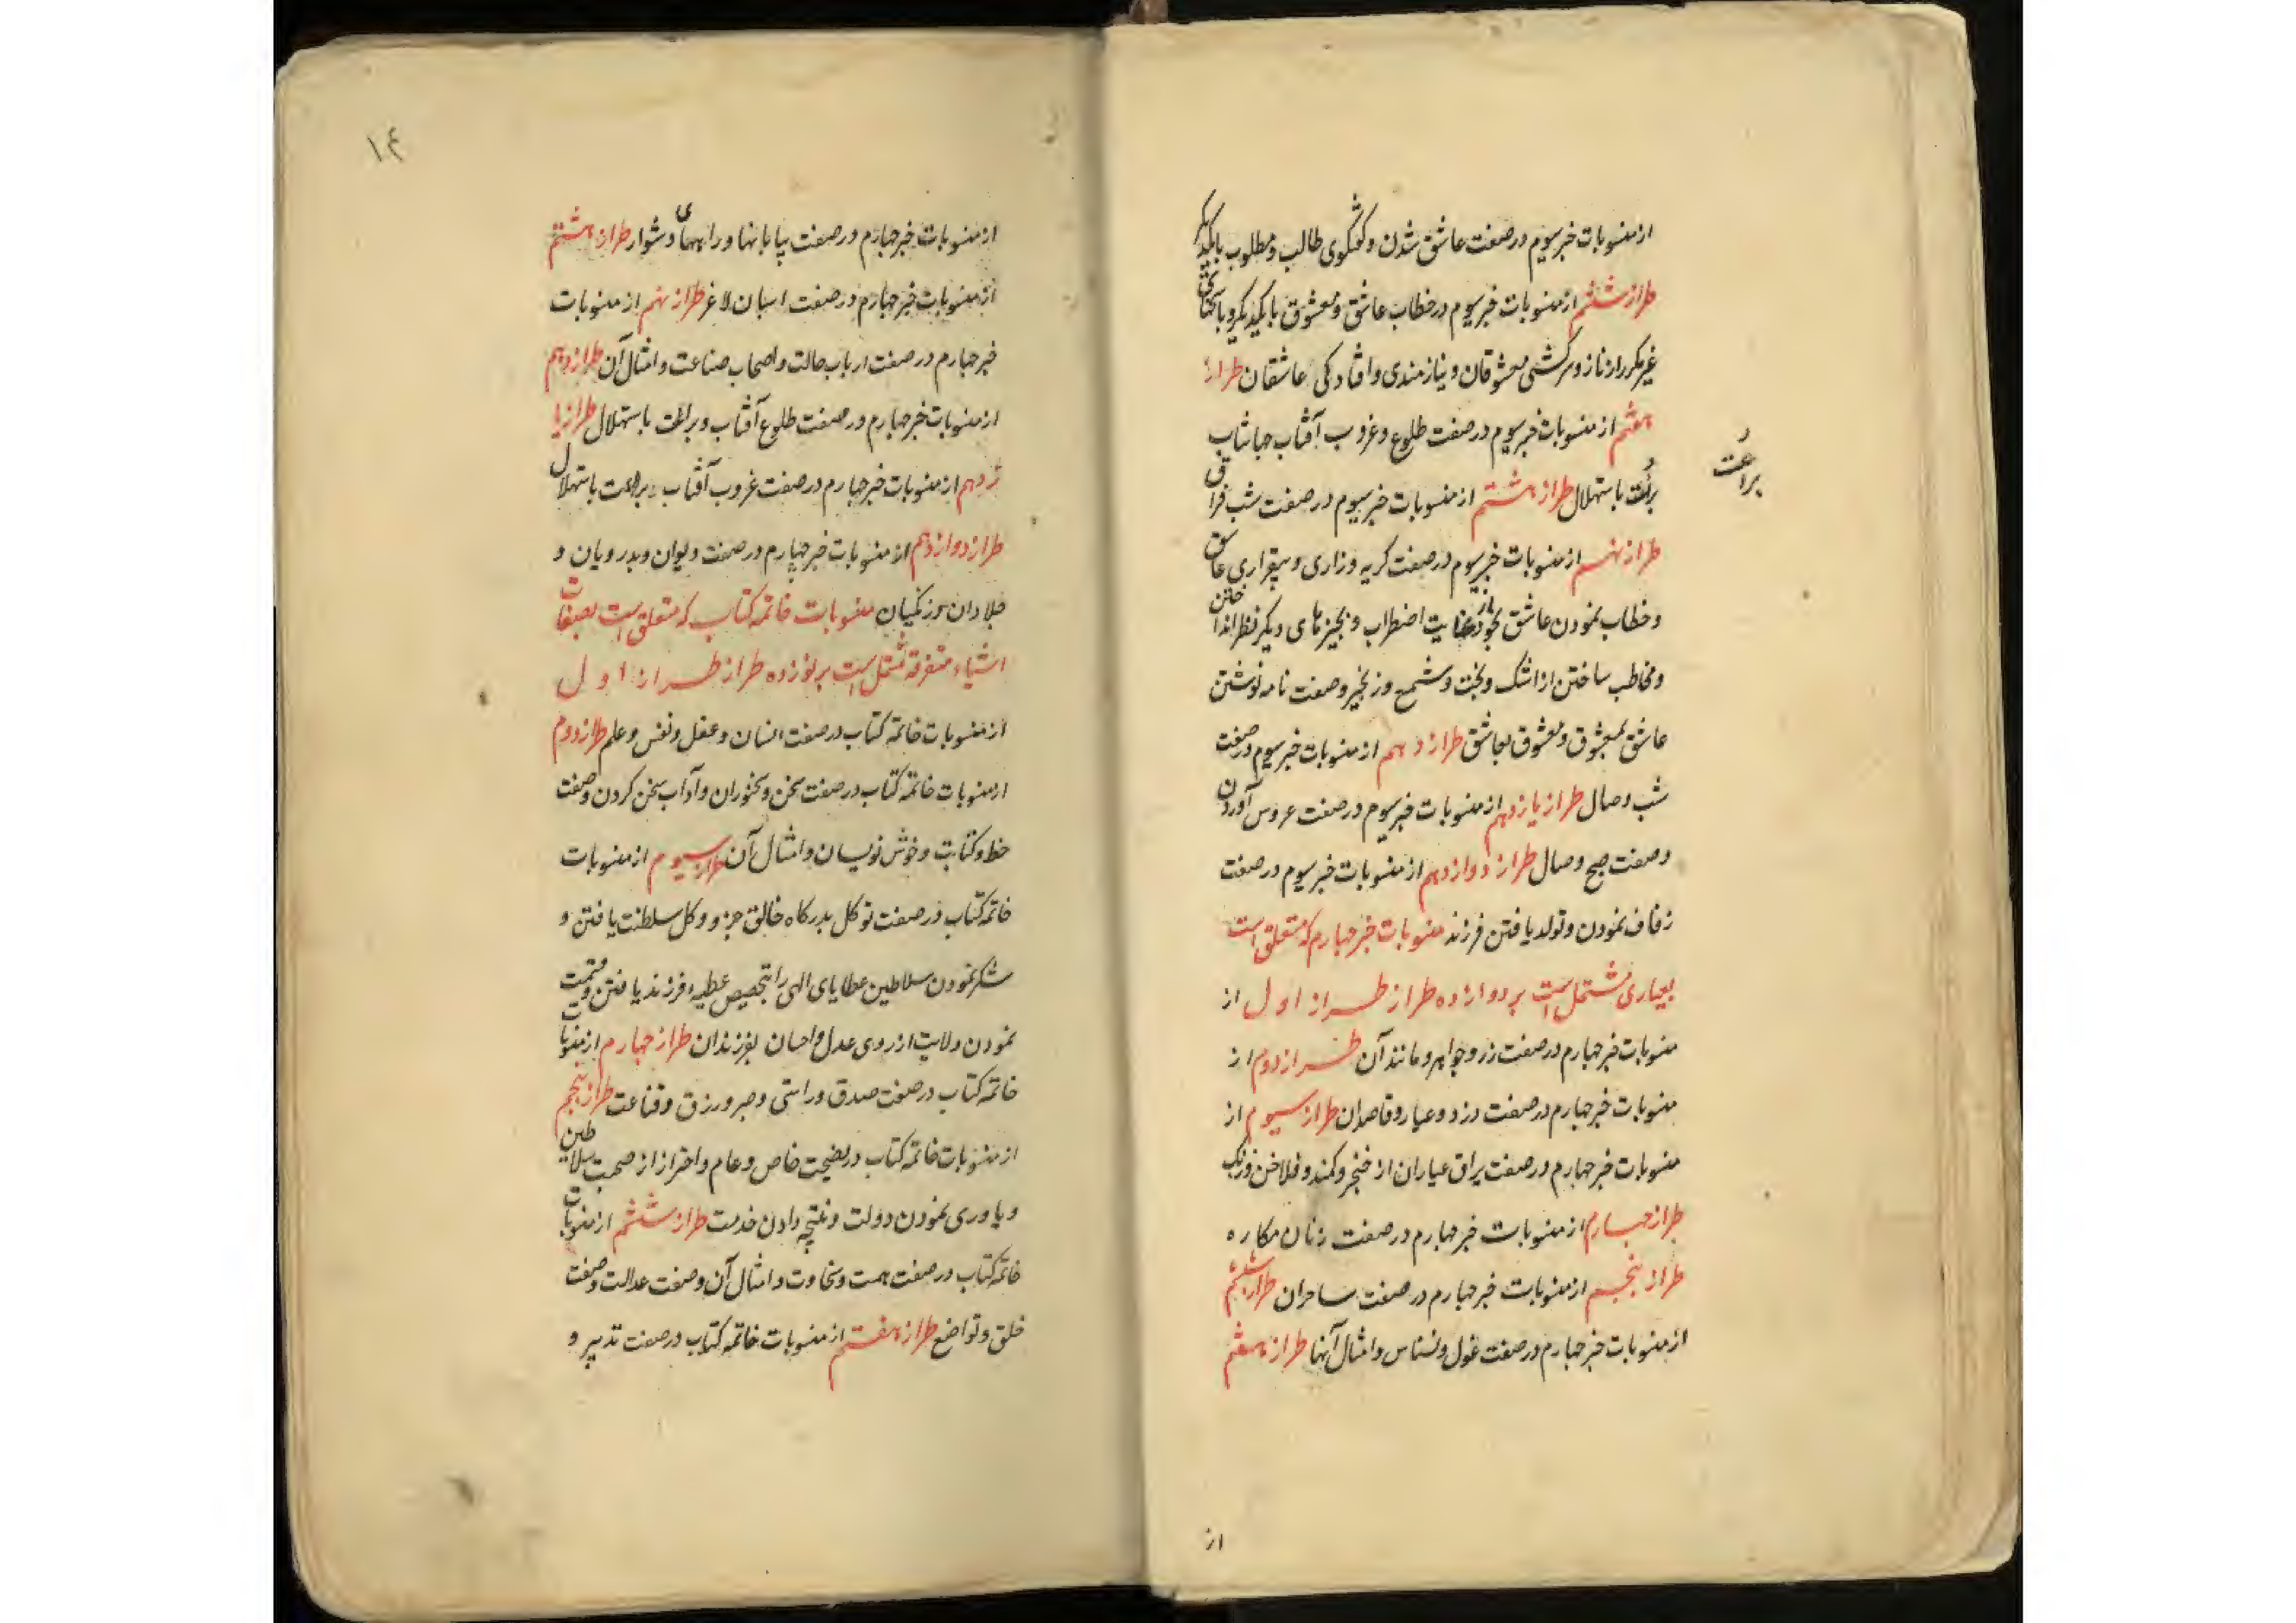 از منسوبات خبر سیوم در صفت عاشق شدن و گفتگوی طالب و مطلوب با یکدیگر
طراز ششم از منسوبات خبر سیوم در خطاب عاشق و معشوق با یکدیگر و با
غیر مکرر از ناز و سرکشی معشوقان و نیازمندی و افتادگی عاشقان طراز
هفتم از منسوبات خبر سیوم در صفت طلوع و غروب آفتاب جهانتاب
براعت باستهلال طراز هشتم از منسوبات خبر سیوم در صفت شب فراق
براعت
طراز نهم از منسوبات خبر سیوم در صفت گریه و زاری و بیقراری عاشق
و خطاب نمودن عاشق بخود از غایت اضطراب و بچیزهای دیگر نظر انداختن
و مخاطب ساختن از اشک و بخت و شمع و زنجیر و صفت نامه نوشتن
عاشق بمعشوق و معشوق بعاشق طراز دهم از منسوبات خبر سیوم در صفت
شب وصال طراز یازدهم از منسوبات خبر سیوم در صفت عروس آوردن
و صفت صبح وصال طراز دوازدهم از منسوبات خبر سیوم در صفت
زفاف نمودن و تولد یافتن فرزند منسوبات خبر چهارم که متعلق است
بعیاری مشتمل است بر دوازده طراز طراز اول از
منسوبات خبر چهارم در صفت زر و جواهر و مانند آن طراز دوم از
منسوبات خبر چهارم در صفت دزد و عیار و قاصدان طراز سیوم از
منسوبات خبر چهارم در صفت یراق عیاران از خنجر و کمند و فلاخن و زنگ
طراز چهارم از منسوبات خبر چهارم در صفت زنان مکاره
طراز پنجم از منسوبات خبر چهارم در صفت ساحران طراز ششم
از منسوبات خبر چهارم در صفت غول و نسناس و امثال آنها طراز هفتم
از
۱۴
از منسوبات خبر چهارم در صفت بیابانها و راههای دشوار طراز هشتم
از منسوبات خبر چهارم در صفت اسبان لاغر طراز نهم از منسوبات
خبر چهارم در صفت ارباب حالت و اصحاب صناعت و امثال آن طراز دهم
از منسوبات خبر چهارم در صفت طلوع آفتاب و براعت باستهلال طراز یا
زدهم از منسوبات خبر چهارم در صفت غروب آفتاب و براعت باستهلال
طراز دوازدهم از منسوبات خبر چهارم در صفت دیوان و بدرویان و
جلادان و زنگیان منسوبات خاتمه کتاب که متعلق است بصفات
اشیاء متفرقه مشتمل است بر نوزده طراز طراز اول
از منسوبات خاتمه کتاب در صفت انسان و عقل و نفس و علم طراز دوم
از منسوبات خاتمه کتاب در صفت سخن و سخنوران و آداب سخن کردن و صفت
خط و کتابت و خوش نویسان و امثال آن طراز سیوم از منسوبات
خاتمه کتاب در صفت توکل بدرگاه خالق جزو و کل سلطنت یافتن و
شکر نمودن سلاطین عطایای الهی را بتخصیص عطیه فرزند یافتن و قسمت
نمودن ولایت از روی عدل و احسان بفرزندان طراز چهارم از منسوبات
خاتمه کتاب در صفت صدق و راستی و صبر و رزق و قناعت طراز پنجم
از منسوبات خاتمه کتاب در نصیحت خاص و عام و احتراز از صحبت سلاطین
و یاوری نمودن دولت و نتیجه دادن خدمت طراز ششم از منسوبات
خاتمه کتاب در صفت همت و سخاوت و امثال آن و صفت عدالت و صفت
خلق و تواضع طراز هفتم از منسوبات خاتمه کتاب در صفت تدبیر و